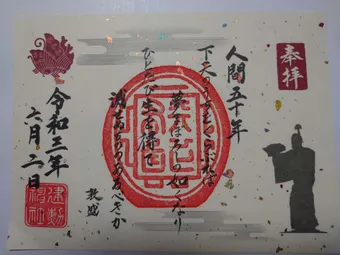 奉拝
人間五十年
下天のうちをくらぶれば
夢まぼろしの如くなり
ひとたび生を得て
滅せぬもののあるべきか
敦盛
令和三年
六月二日
建勲神社